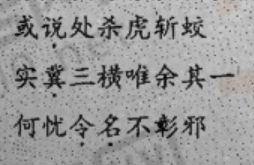 或说处杀虎斩蛟
实冀三横唯余其一
何忧令名不彰邪